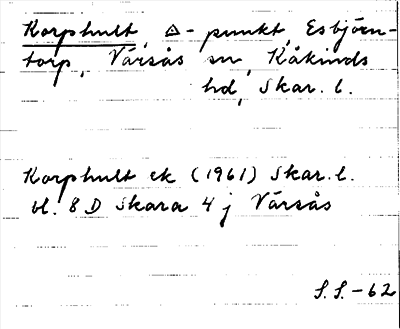 Korphult, △-punkt, Esbjörn-
torp, Värsås sn, Kåkinds
hd, Skar. l.
Korphult ek (1961) Skar. l.
bl. 8 D Skara 4 j Värsås
S.S.-62